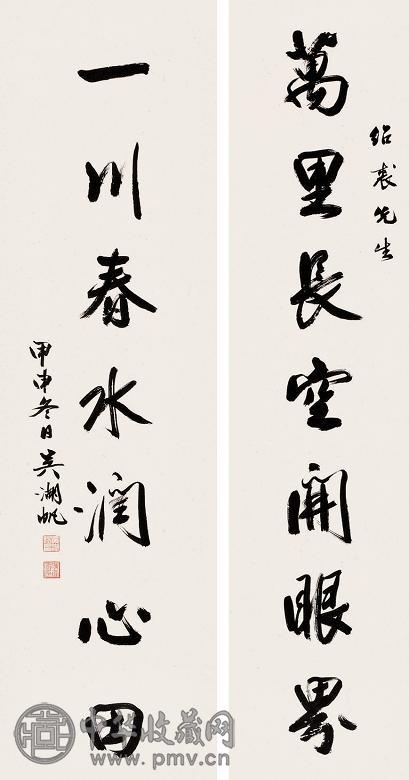 紹裘先生
萬里長空開眼界
一川春水潤心田
甲申冬日吳湖帆
中华收藏网
www.pmv.cn